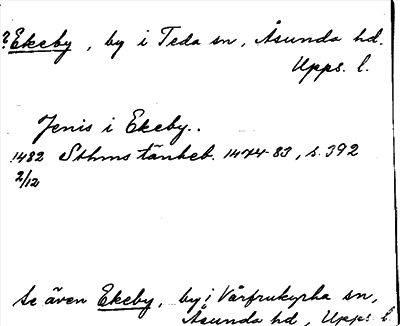 ?Ekeby, by i Teda sn, Åsunda hd.
Upps. l.
Jenis i Ekeby..
1482 Sthms tänkeb. 1474-83, s. 392
2/12
Se även Ekeby, by i Vårfrukyrka sn,
Åsunda hd, Upps. l.